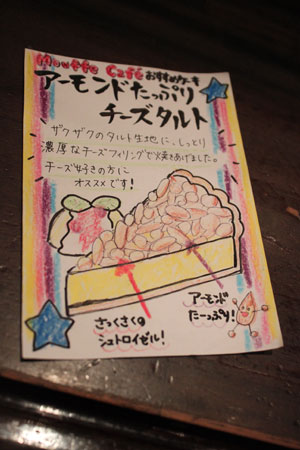 Mouffe Café おすすめケーキ
アーモンドたっぷり
チーズタルト
ザクザクのタルト生地に、しっとり
濃厚なチーズフィリングで焼きあげました。
チーズ好きの方に
オススメです!
アーモンド
たーっぷり!
さっくさくの
シュトロイゼル!